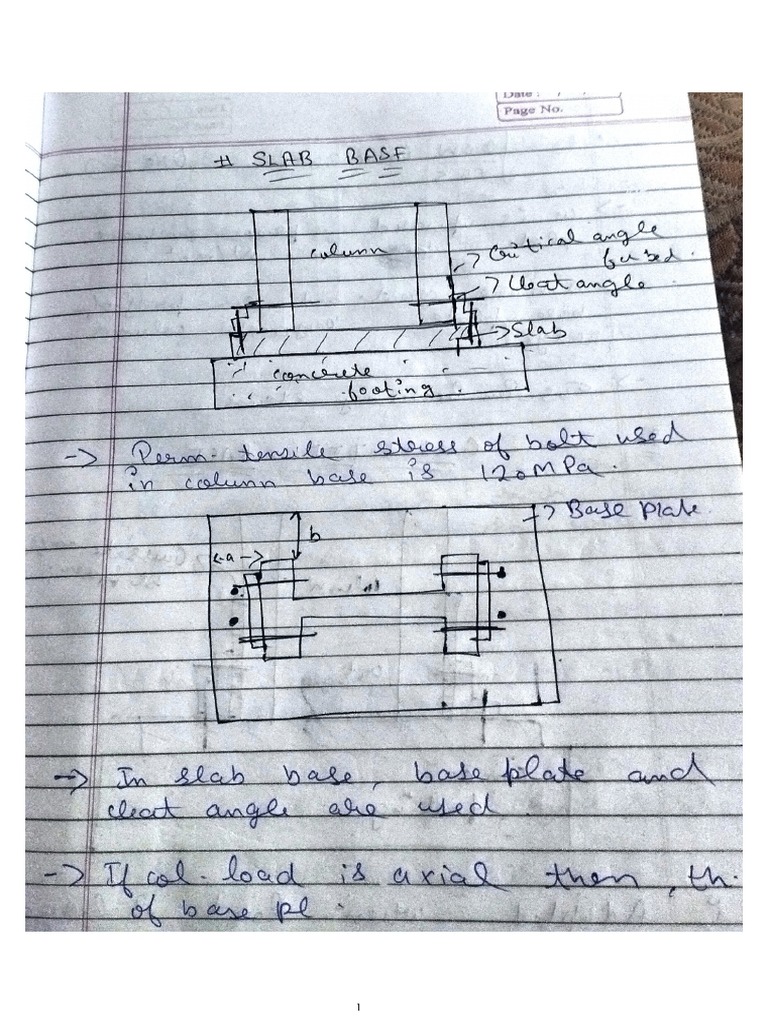 Date : / /
Page No.
# SLAB BASE
column
→ Critical angle
→ Cleat angle
→ Slab
concrete
footing
→ Perm. tensile stress of bolt used
in column base is 120MPa.
→ Base plate
b
←a→
→ In slab base, base plate and
cleat angle are used.
→ If col. load is axial then, th.
of base pl.
1